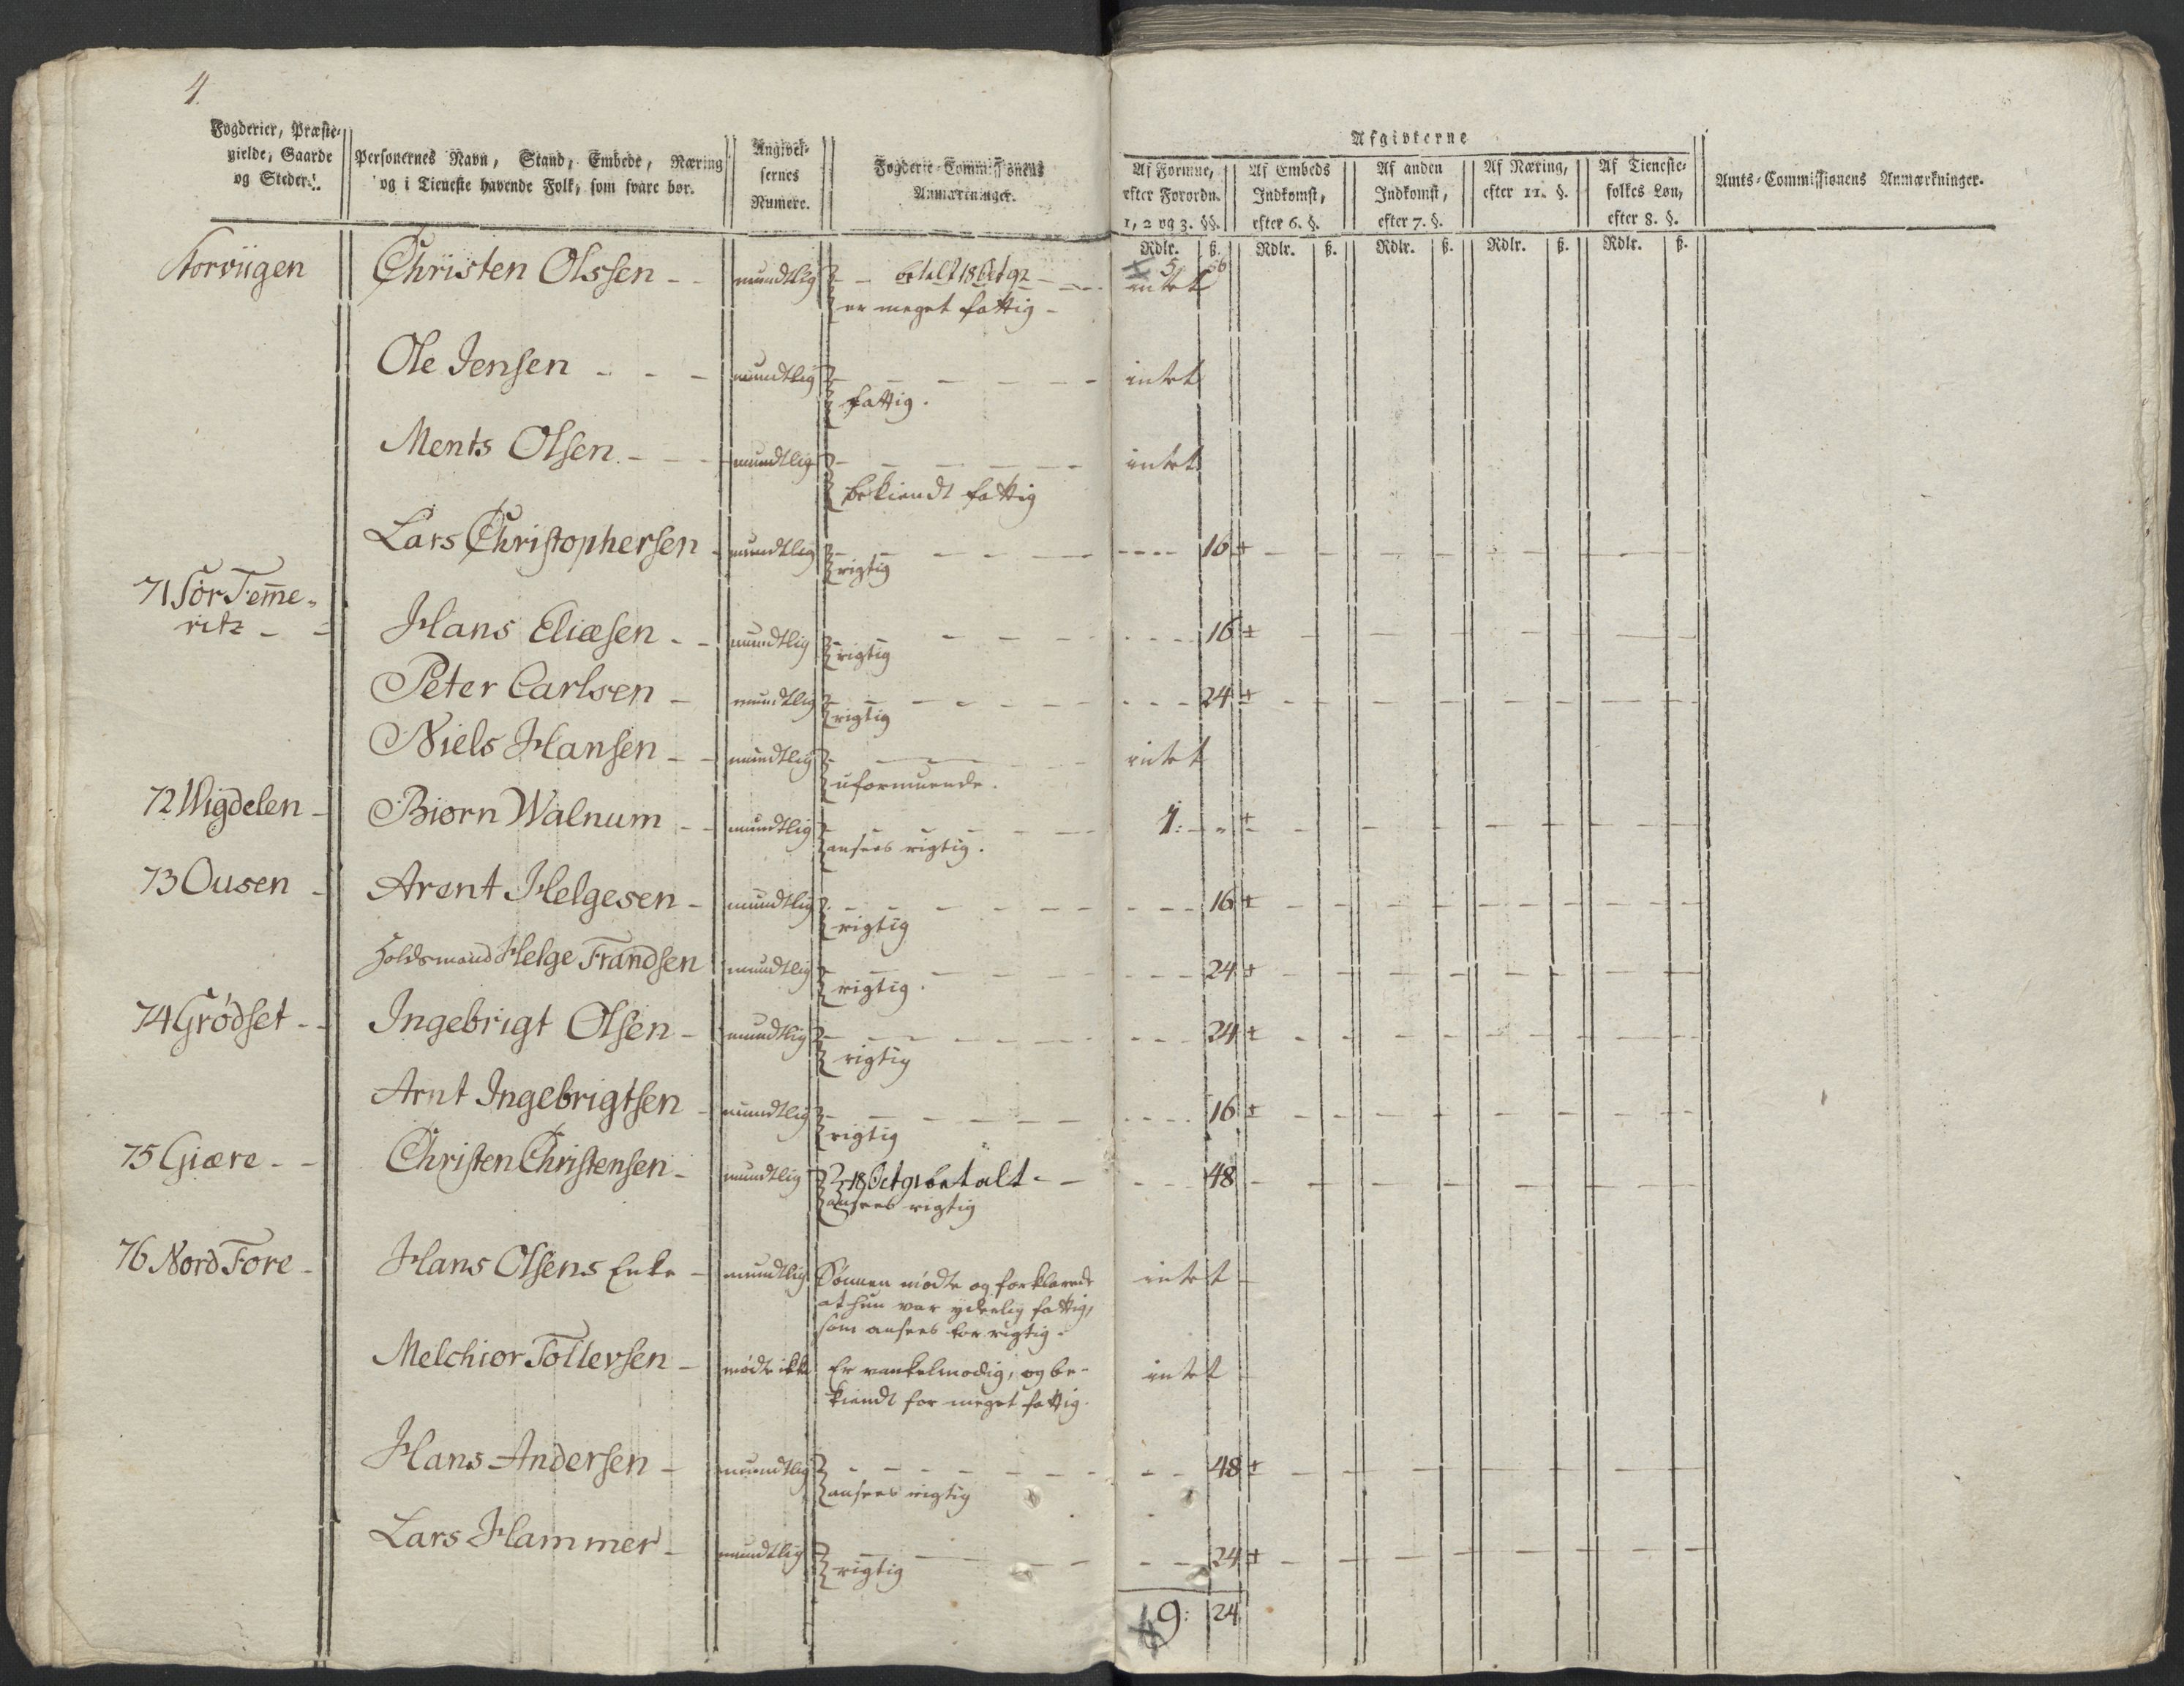 4.
Fogderier, Præste-
gielde, Gaarde
og Steder.
Personernes Navn, Stand, Embede, Næring
og i Tieneste havende Folk, som svare bør.
Angivel-
sernes
Numere.
Fogderie-Commissionens
Anmærkninger.
Afgivterne
Af Formue,
efter Forordn.
1, 2 og 3. §§.
Af Embeds
Indkomst,
efter 6. §.
Af anden
Indkomst,
efter 7. §.
Af Næring,
efter 11. §.
Af Tieneste-
folkes Løn,
efter 8. §.
Amts-Commissionens Anmærkninger.
Rdlr. ß. Rdlr. ß. Rdlr. ß. Rdlr. ß. Rdlr. ß.
Christen Olssen - - mundtlig - betalt 18 Oct 92 - 5 56
er meget fattig - intet
Ole Jensen - - - mundtlig - intet
fattig.
Ments Olsen - - - mundtlig - intet
bekiendt fattig
Lars Christophersen - mundtlig - 16
rigtig
71 Sør Tem̅e-
ritz - - Hans Eliæsen - - mundtlig - 16
rigtig
Peter Carlsen - mundtlig - 24
rigtig
Niels Hansen - - mundtlig - intet
uformuende.
72 Wigdelen - Biørn Walnum - - mundtlig - 1: - "
ansees rigtig.
73 Ousen - Arent Helgesen - mundtlig - 16
rigtig
Helge Frandsen mundtlig - 24
rigtig.
74 Grødset - - Ingebrigt Olsen - mundtlig - 24
rigtig
Arnt Ingebrigtsen - mundtlig - 16
rigtig
75 Giære - - Christen Christensen - mundtlig 18 Oct 91 betalt - - 48
ansees rigtig
76 Nord Fore - Hans Olsens Enke - mundtlig Sønnen mødte og forklarede intet
at hun var yderlig fattig,
som ansees for rigtig.
Melchior Tollevsen - mødte ikke Er vankelmodig, og be- intet
kiendt for meget fattig.
Hans Andersen - mundtlig - 48
ansees rigtig
Lars Hammer - mundtlig - 24
rigtig
9: 24